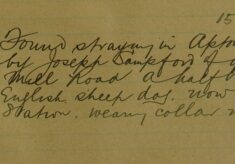 15
Found straying in
by Joseph Sampford of
Mill Road a half
English sheep dog. now
Station. wearing collar